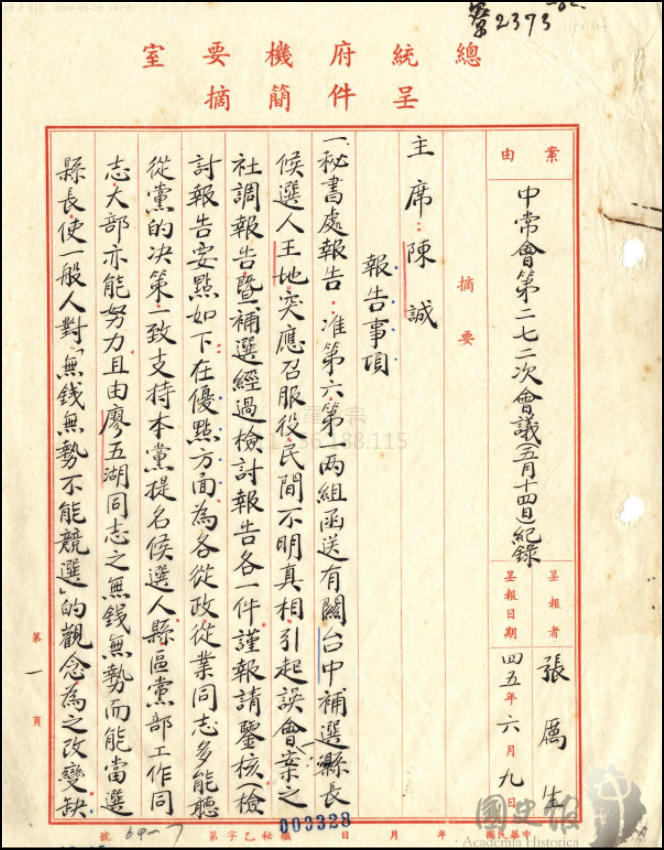 寮2373
總統府機要室
呈件簡摘
案由
中常會第二七二次會議(五月十四日)紀錄
呈報者
張厲生
呈報日期
四五年六月九日
摘要
主席：陳誠
報告事項
一、秘書處報告：准第六、第一兩組函送有關台中補選縣長
候選人王地突應召服役民間不明真相引起誤會案之
社調報告暨補選經過檢討報告各一件謹報請鑒核(檢
討報告要點如下：在優點方面為各從政從業同志多能聽
從黨的決策一致支持本黨提名候選人縣區黨部工作同
志大部亦能努力且由廖五湖同志之無錢無勢而能當選
縣長使一般人對「無錢無勢不能競選」的觀念為之改變缺
第一頁
中華民國 年 月 日
機秘乙字第 號
003328
國史館
Academia Historica